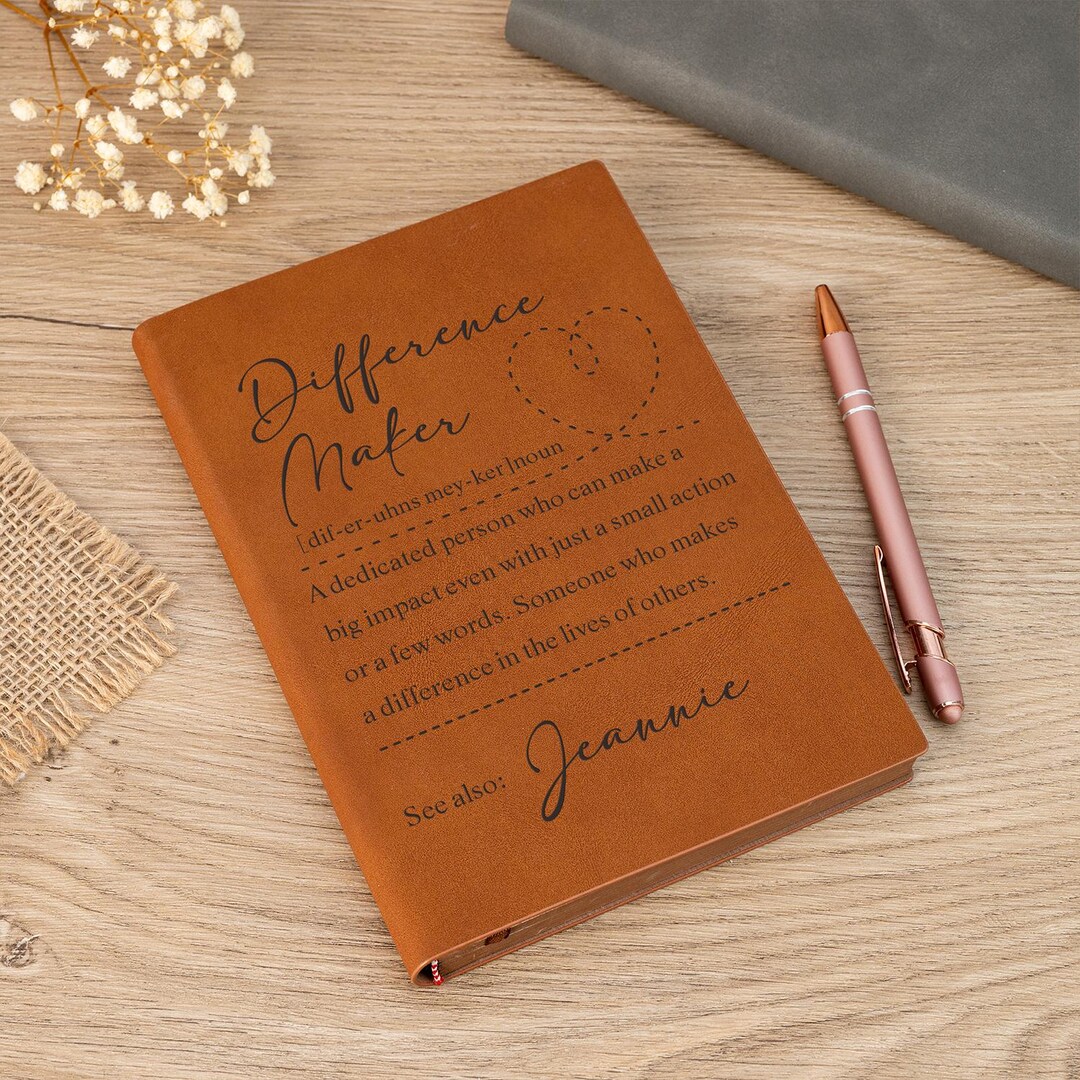 Difference
Maker
[dif-er-uhns mey-ker]noun
A dedicated person who can make a
big impact even with just a small action
or a few words. Someone who makes
a difference in the lives of others.
See also: Jeannie